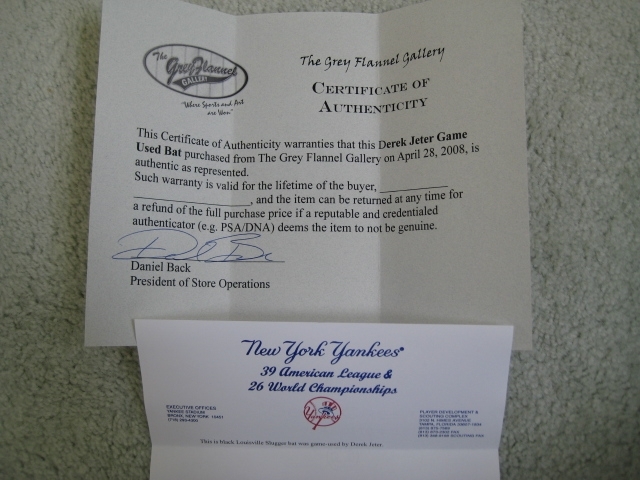 The
Grey Flannel
GALLERY
"Where Sports and Art
are Won"
The Grey Flannel Gallery
CERTIFICATE OF
AUTHENTICITY
This Certificate of Authenticity warranties that this Derek Jeter Game
Used Bat purchased from The Grey Flannel Gallery on April 28, 2008, is
authentic as represented.
Such warranty is valid for the lifetime of the buyer, ____________
____________________, and the item can be returned at any time for
a refund of the full purchase price if a reputable and credentialed
authenticator (e.g. PSA/DNA) deems the item to not be genuine.
Daniel Back
President of Store Operations
New York Yankees®
39 American League &
26 World Championships
Yankees
EXECUTIVE OFFICES
YANKEE STADIUM
BRONX, NEW YORK 10451
PLAYER DEVELOPMENT &
SCOUTING COMPLEX
TAMPA, FLORIDA
This is black Louisville Slugger bat was game-used by Derek Jeter.